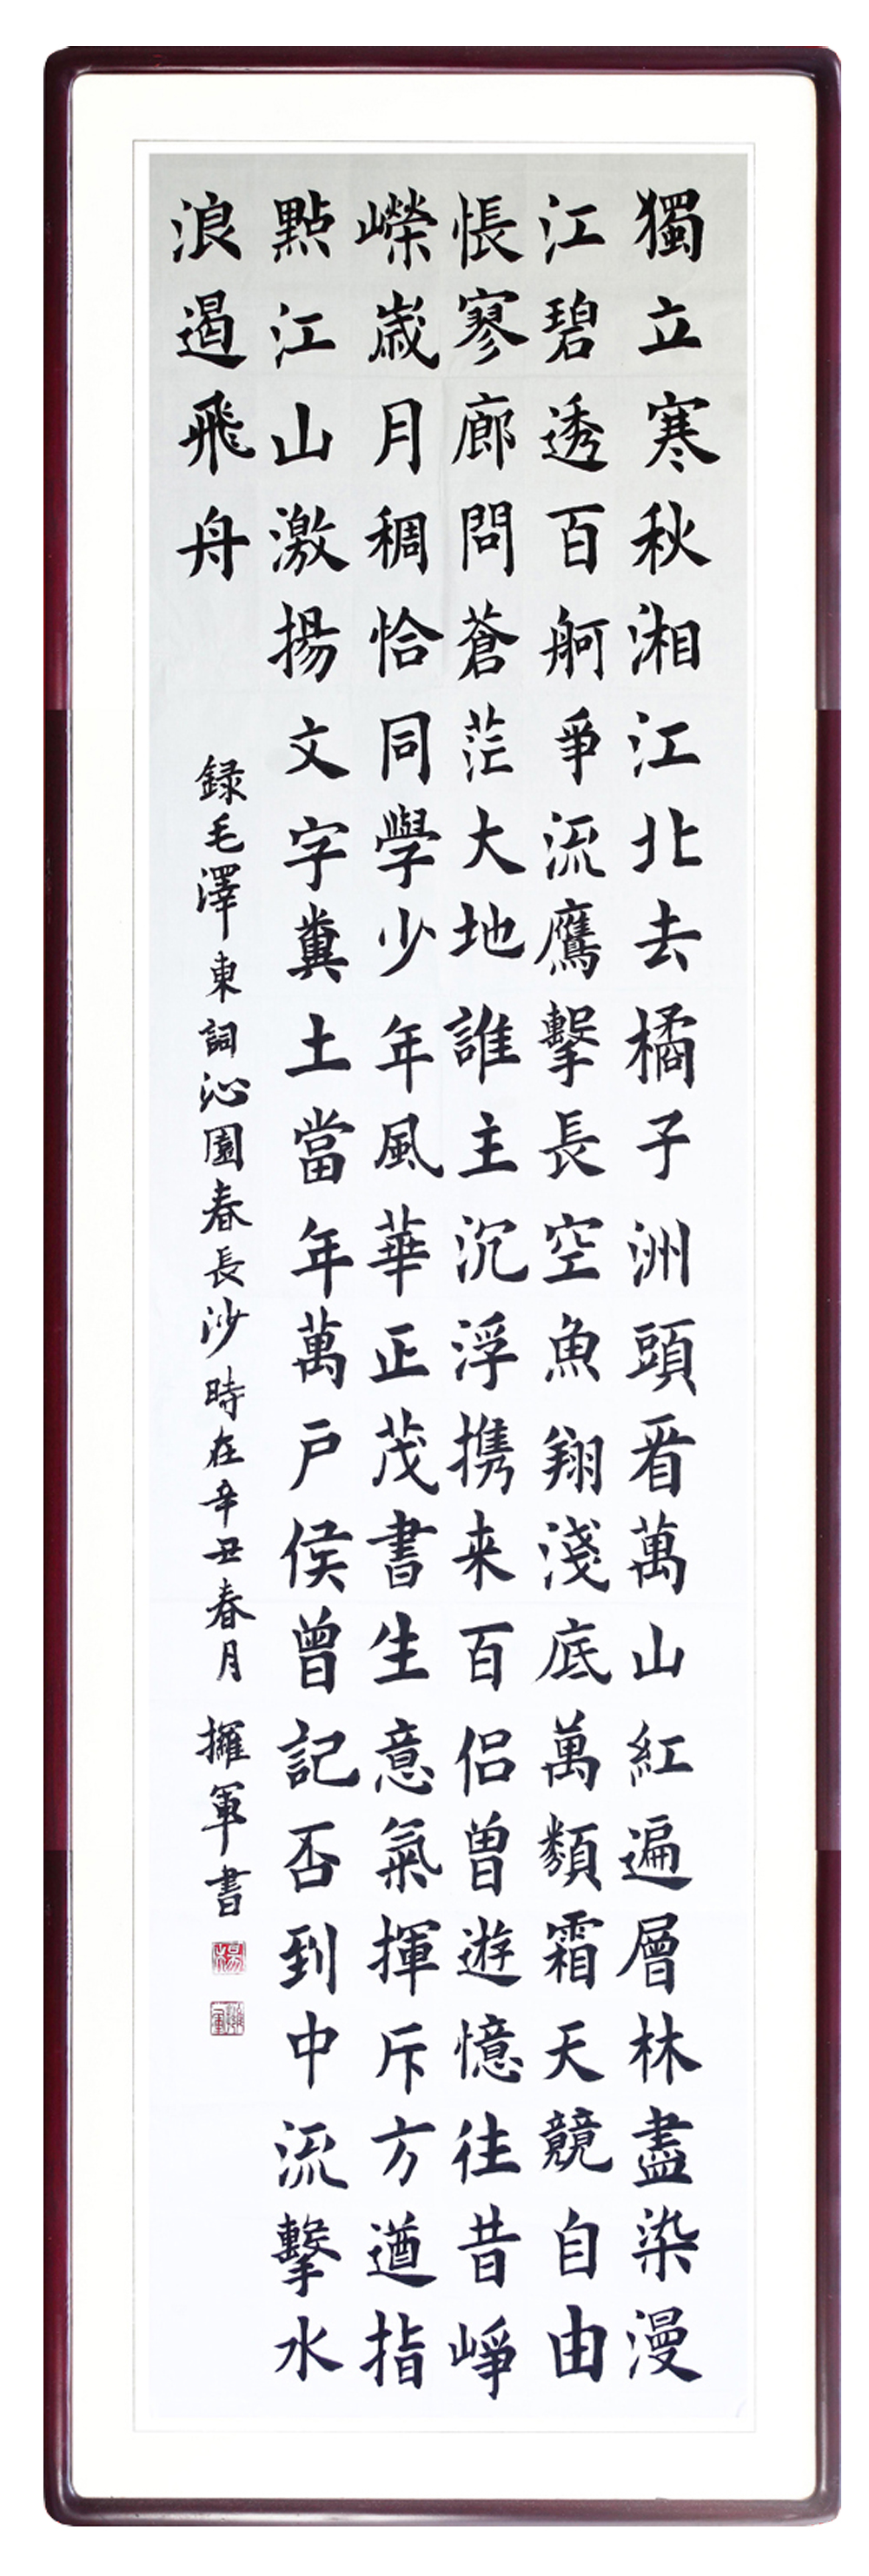 獨立寒秋湘江北去橘子洲頭看萬山紅遍層林盡染漫
江碧透百舸爭流鷹擊長空魚翔淺底萬類霜天競自由
悵寥廓問蒼茫大地誰主沉浮攜来百侶曾遊憶往昔崢
嶸歲月稠恰同學少年風華正茂書生意氣揮斥方遒指
點江山激揚文字糞土當年萬戶侯曾記否到中流擊水
浪遏飛舟
録毛澤東詞沁園春長沙時在辛丑春月 擁軍書